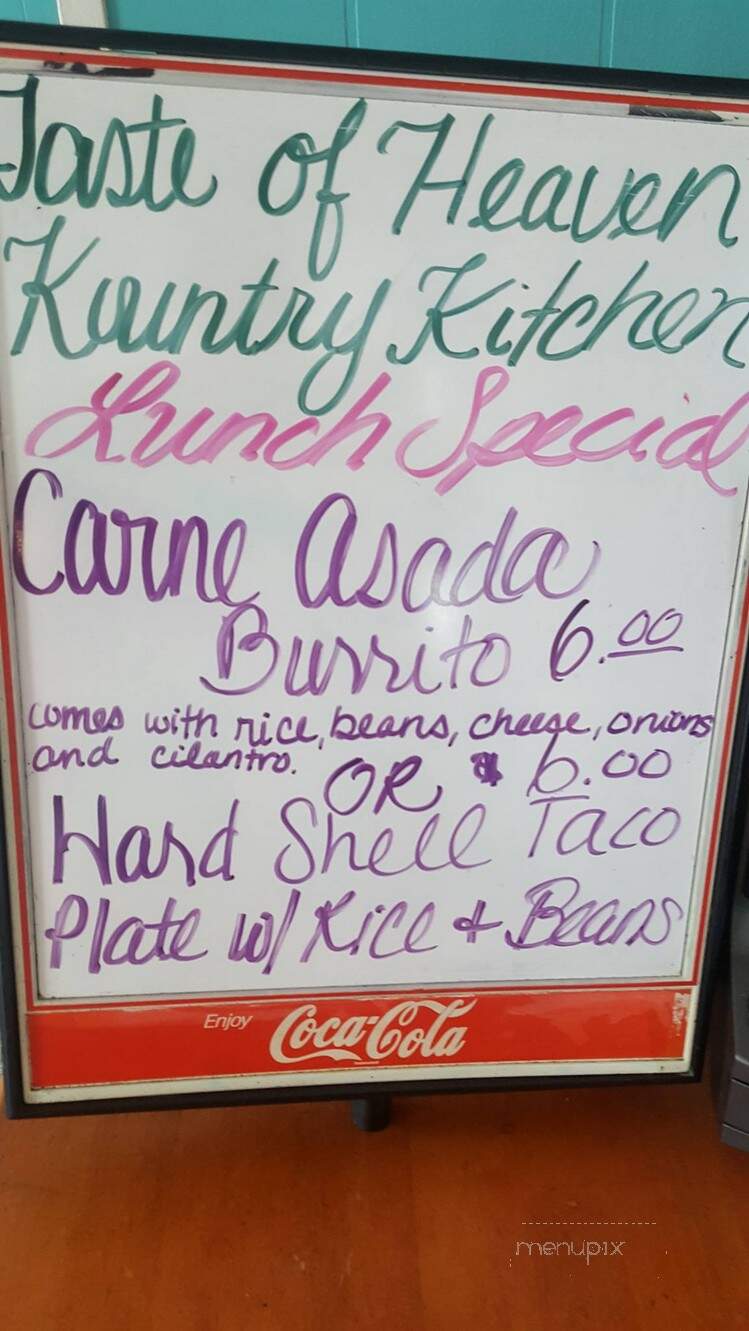 Taste of Heaven
Kountry Kitchen
Lunch Special
Carne Asada
Burrito 6.00
comes with rice, beans, cheese, onions
and cilantro. OR $6.00
Hard Shell Taco
Plate w/ Rice + Beans
Enjoy Coca-Cola
menupix